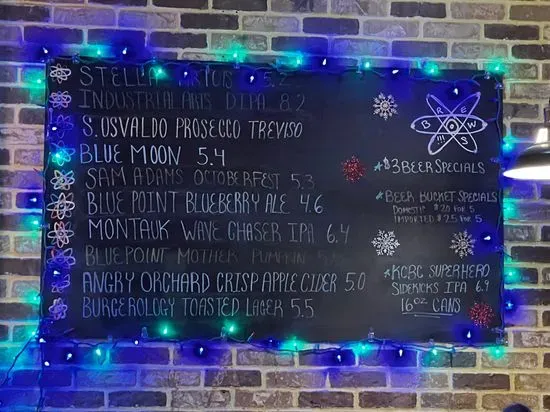 STELLA ARTOIS 5.2
INDUSTRIAL ARTS DIPA 8.2
S. OSVALDO PROSECCO TREVISO
BLUE MOON 5.4
SAM ADAMS OCTOBERFEST 5.3
BLUE POINT BLUEBERRY ALE 4.6
MONTAUK WAVE CHASER IPA 6.4
BLUEPOINT MOTHER PUMPKIN
ANGRY ORCHARD CRISP APPLE CIDER 5.0
BURGEROLOGY TOASTED LAGER 5.5
BREWS
!!!
$3 BEER SPECIALS
BEER BUCKET SPECIALS
DOMESTIC $20 FOR 5
IMPORTED $25 FOR 5
KCBC SUPERHERO
SIDEKICKS IPA 6.9
16OZ CANS